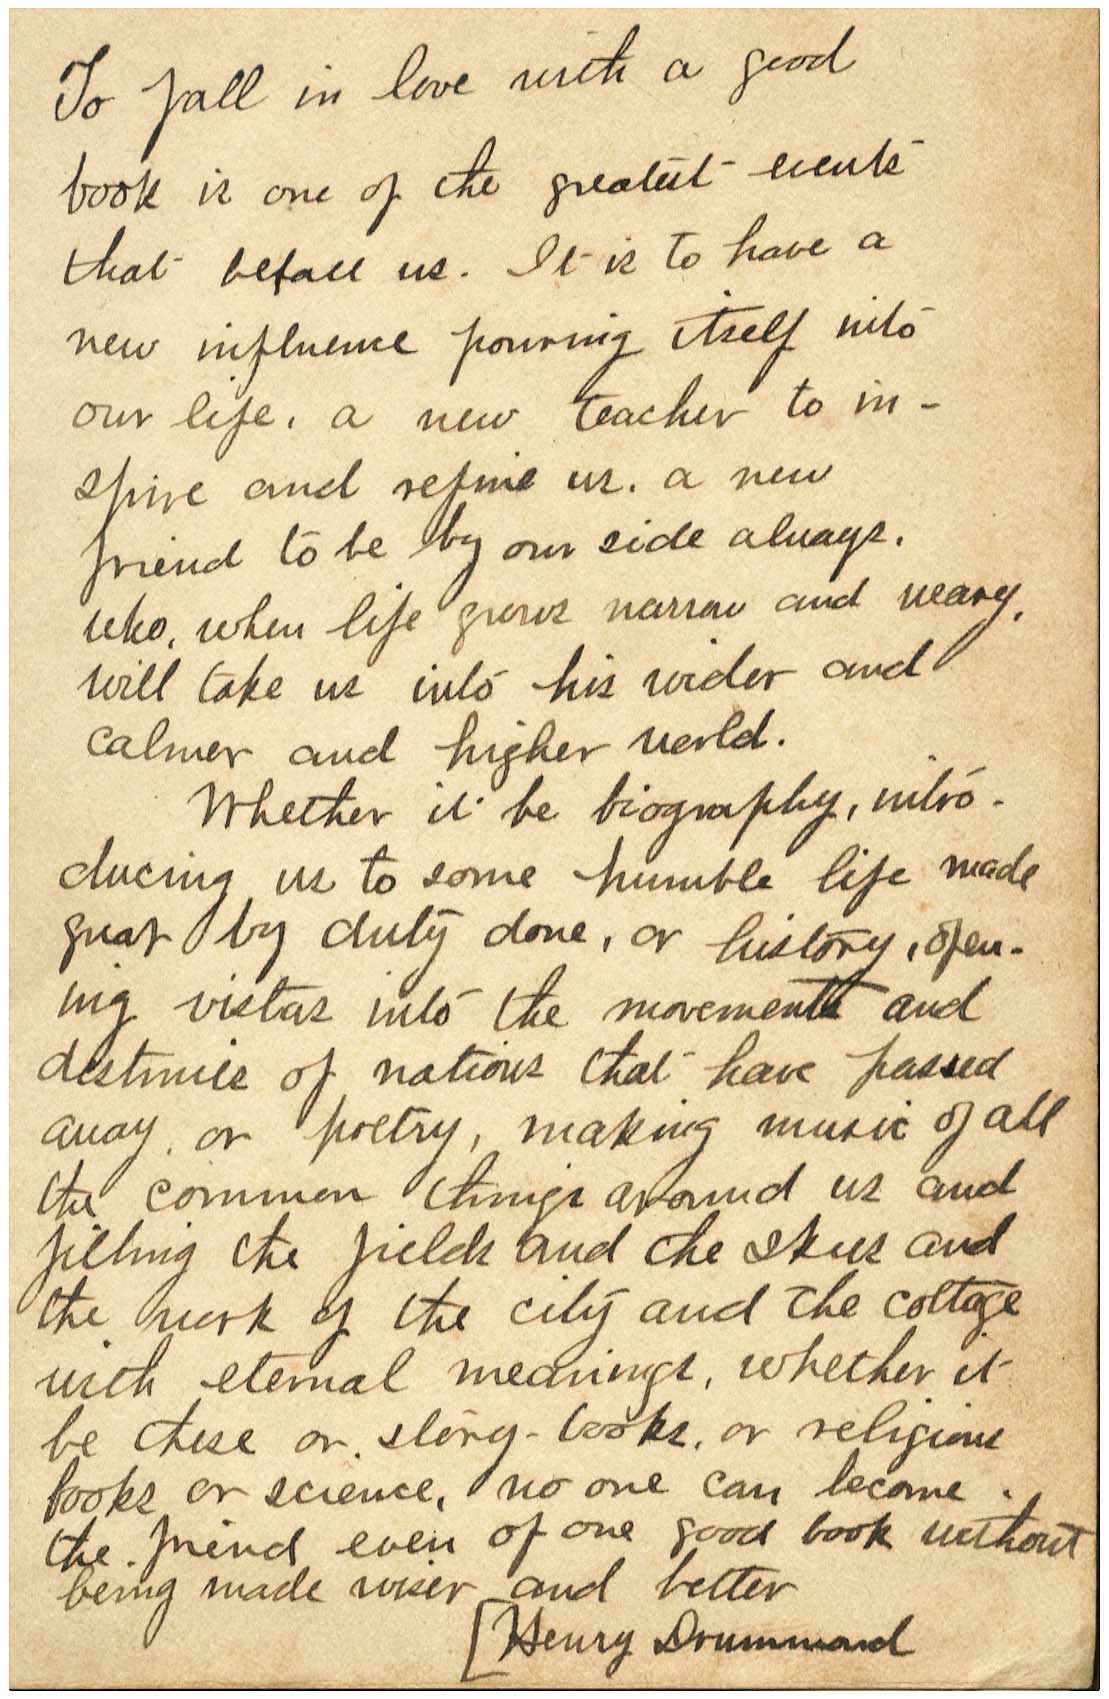 To fall in love with a good
book is one of the greatest events
that befall us. It is to have a
new influence pouring itself into
our life, a new teacher to in-
spire and refine us, a new
friend to be by our side always,
who, when life grows narrow and weary,
will take us into his wider and
calmer and higher world.
Whether it be biography, intro-
ducing us to some humble life made
great by duty done, or history, open-
ing vistas into the movements and
destinies of nations that have passed
away, or poetry, making music of all
the common things around us and
filling the fields and the skies and
the work of the city and the cottage
with eternal meanings, whether it
be these or story-books, or religious
books or science, no one can become
the friend even of one good book without
being made wiser and better
[Henry Drummond